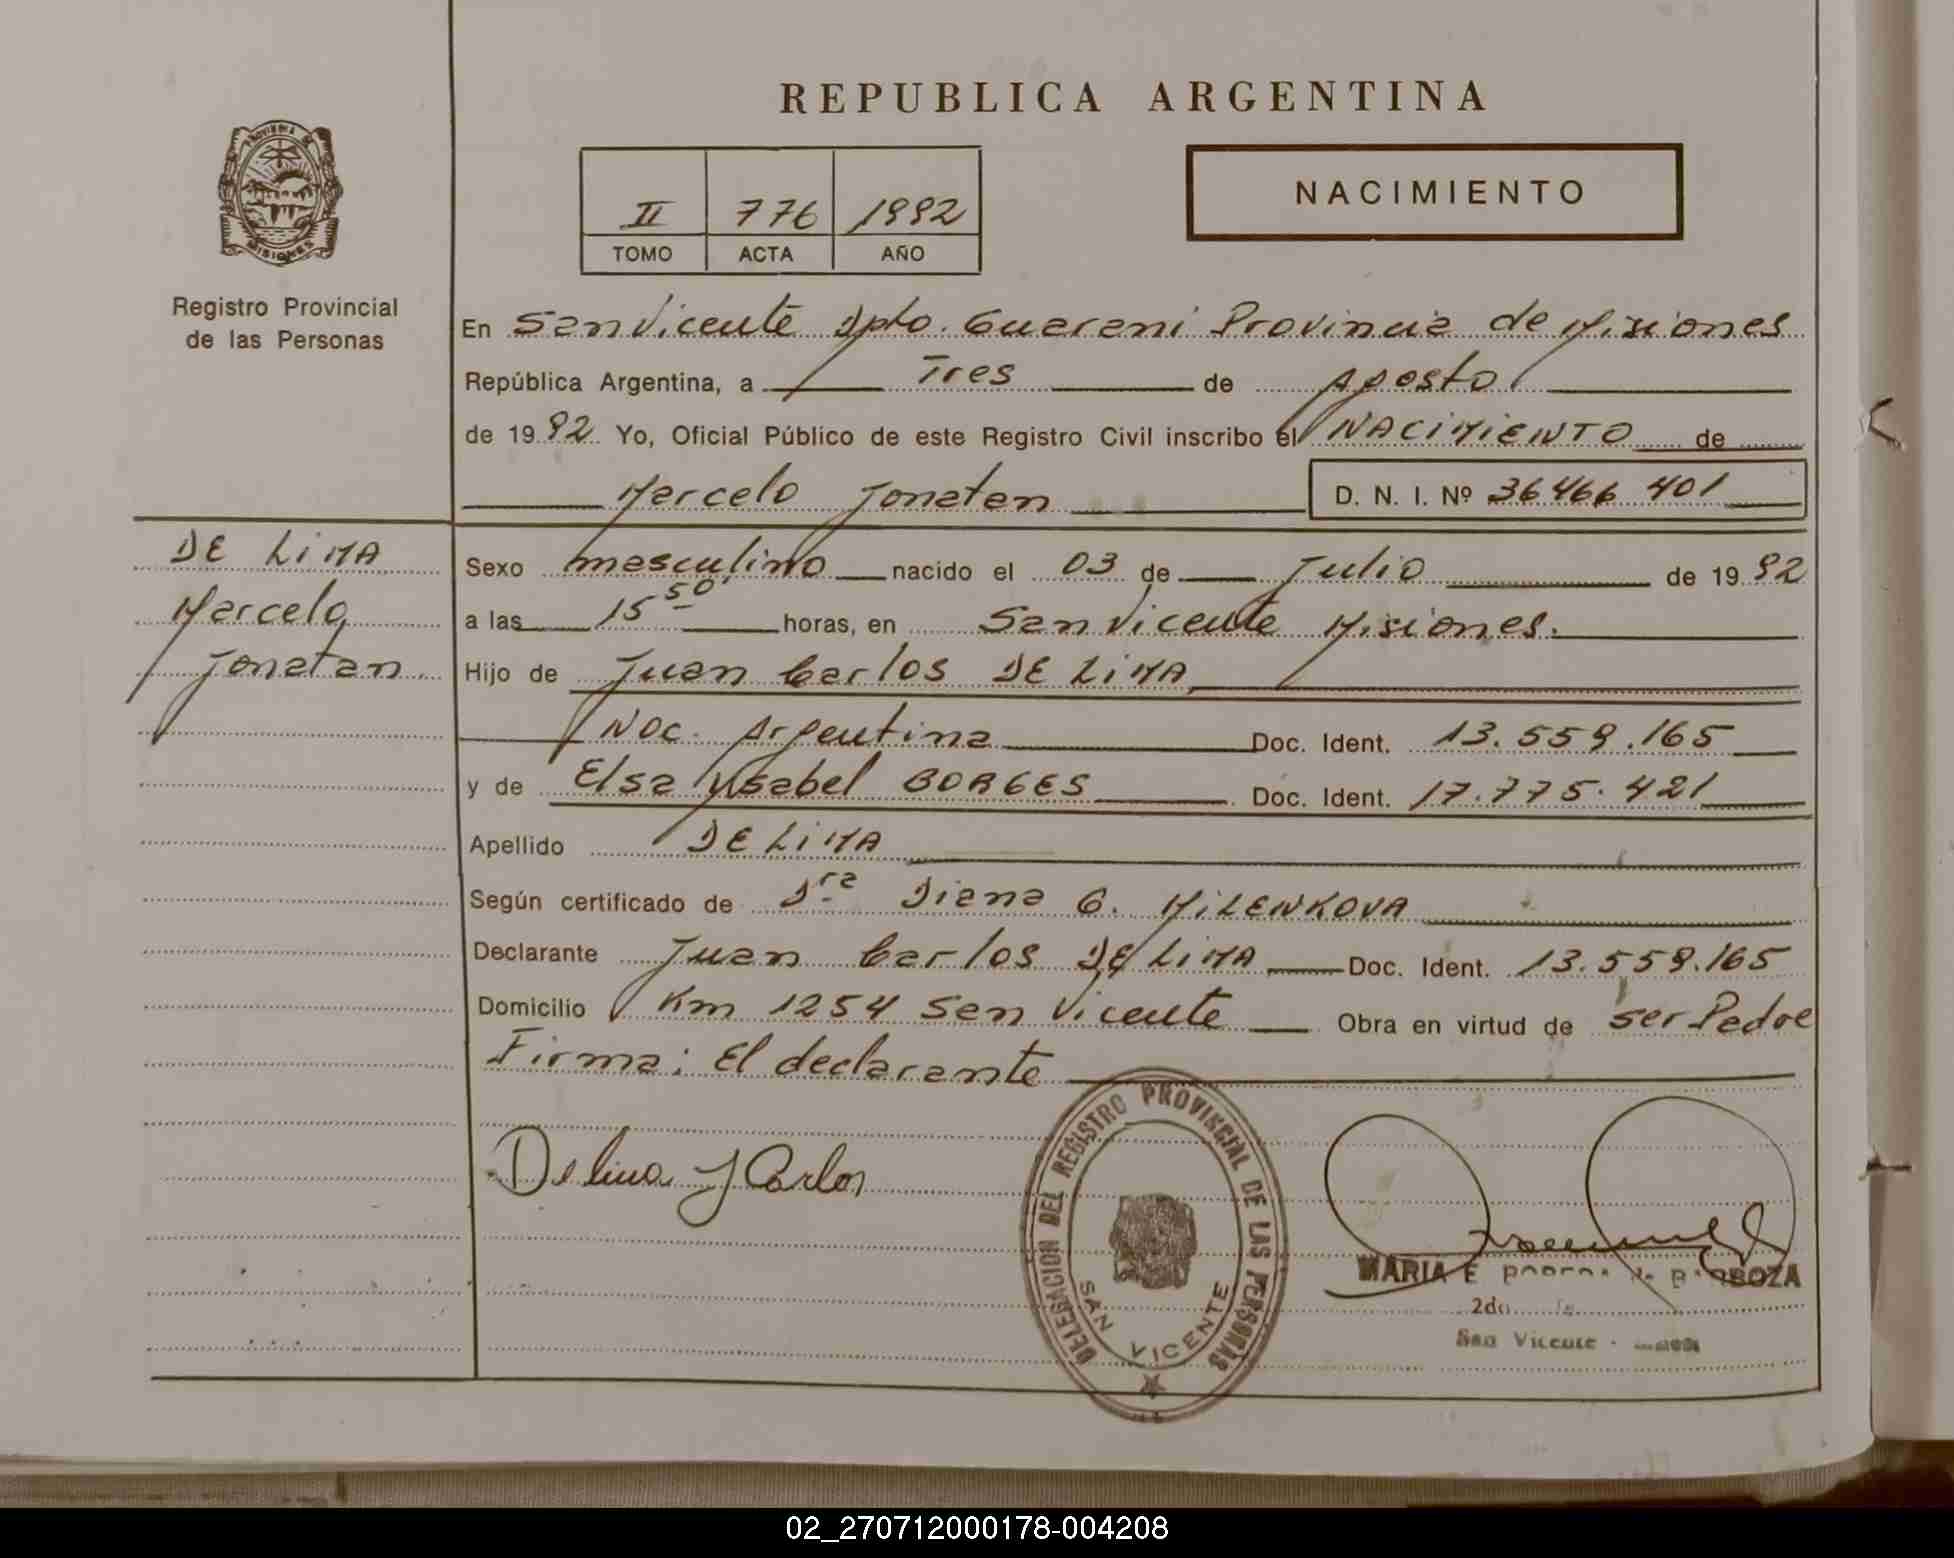 REPUBLICA ARGENTINA
PROVINCIA DE
MISIONES
Registro Provincial
de las Personas
NACIMIENTO
II 776 1992
TOMO ACTA AÑO
En San Vicente Dpto. Guarani Provincia de Misiones
República Argentina, a Tres de Agosto
de 1992 Yo, Oficial Público de este Registro Civil inscribo el NACIMIENTO de
Marcelo Jonatan D. N. I. Nº 36466 401
DE LIMA
Marcelo
Jonatan
Sexo masculino nacido el 03 de Julio de 1992
a las 15 50 horas, en San Vicente Misiones.
Hijo de Juan Carlos DE LIMA
Nac. Argentina Doc. Ident. 13.559.165
y de Elsa Ysabel BORGES Doc. Ident. 17.775.421
Apellido DE LIMA
Según certificado de Dra Diana G. MILENKOVA
Declarante Juan Carlos DE LIMA Doc. Ident. 13.559.165
Domicilio Km 1254 San Vicente Obra en virtud de ser Padre
Firma: El declarante
De lima J Carlos
DELEGACION DEL REGISTRO PROVINCIAL DE LAS PERSONAS
SAN VICENTE
MARIA E. de BARBOZA
2do
San Vicente
02_270712000178-004208